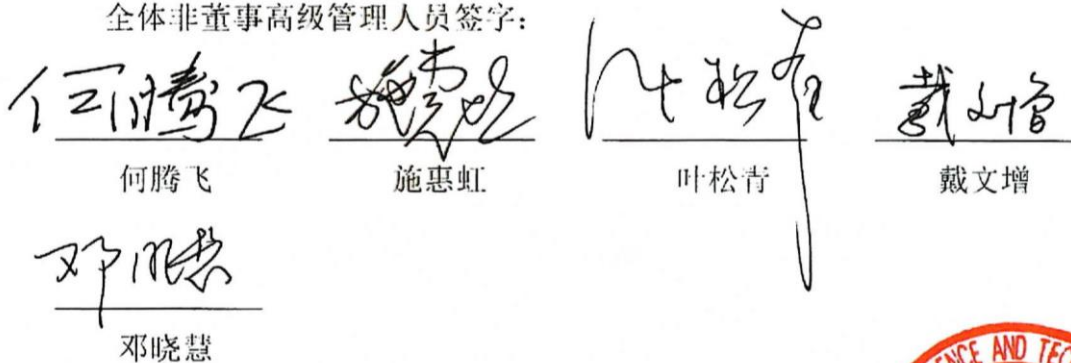 全体非董事高级管理人员签字：
何腾飞 施惠虹 叶松青 戴文增
何腾飞 施惠虹 叶松青 戴文增
邓晓慧
邓晓慧
ENCE AND TEC